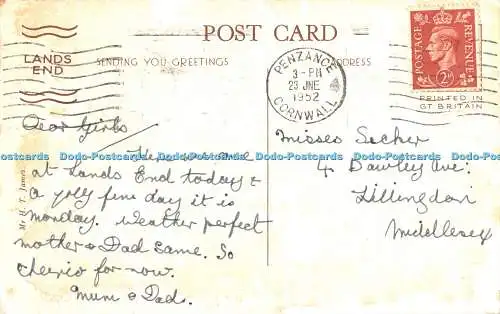 POST CARD
LANDS END
SENDING YOU GREETINGS
ADDRESS
PENZANCE
3-PM
23 JNE
1952
CORNWALL
POSTAGE REVENUE
2D
PRINTED IN
GT BRITAIN
Dear Girls
Here we are
at Lands End today &
a jolly fine day it is
monday. Weather perfect
mother & Dad same. So
cheerio for now.
mum & Dad.
Misses Secker
4. Dawley Ave:
Hillingdon
Middlesex
Mr H. T. James
Dodo-Postcards Dodo-Postcards Dodo-Postcards Dodo-Postcards Dodo-Postcards Dodo-Postcards